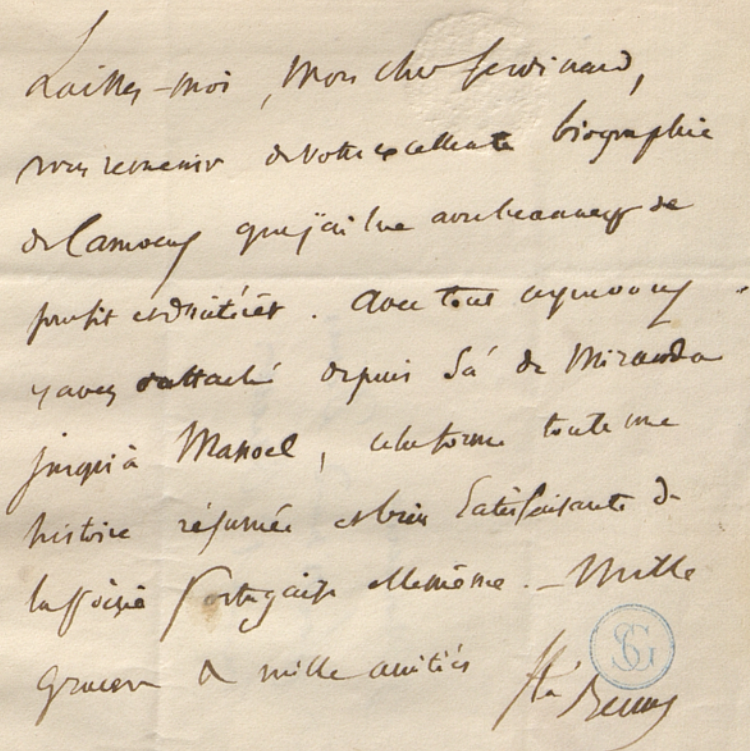 Laissez-moi, mon cher Ferdinand,
vous remercier de votre excellente biographie
de Camoens que j'ai lue avec beaucoup de
profit et d'intérêt. Avec tout ce que vous
y avez rattaché depuis Sá de Miranda
jusqu'à Manoel, cela forme toute une
histoire résumée et bien satisfaisante de
la poësie Portugaise elle même. – Mille
graces & mille amitiés
Ste Beuve
SG